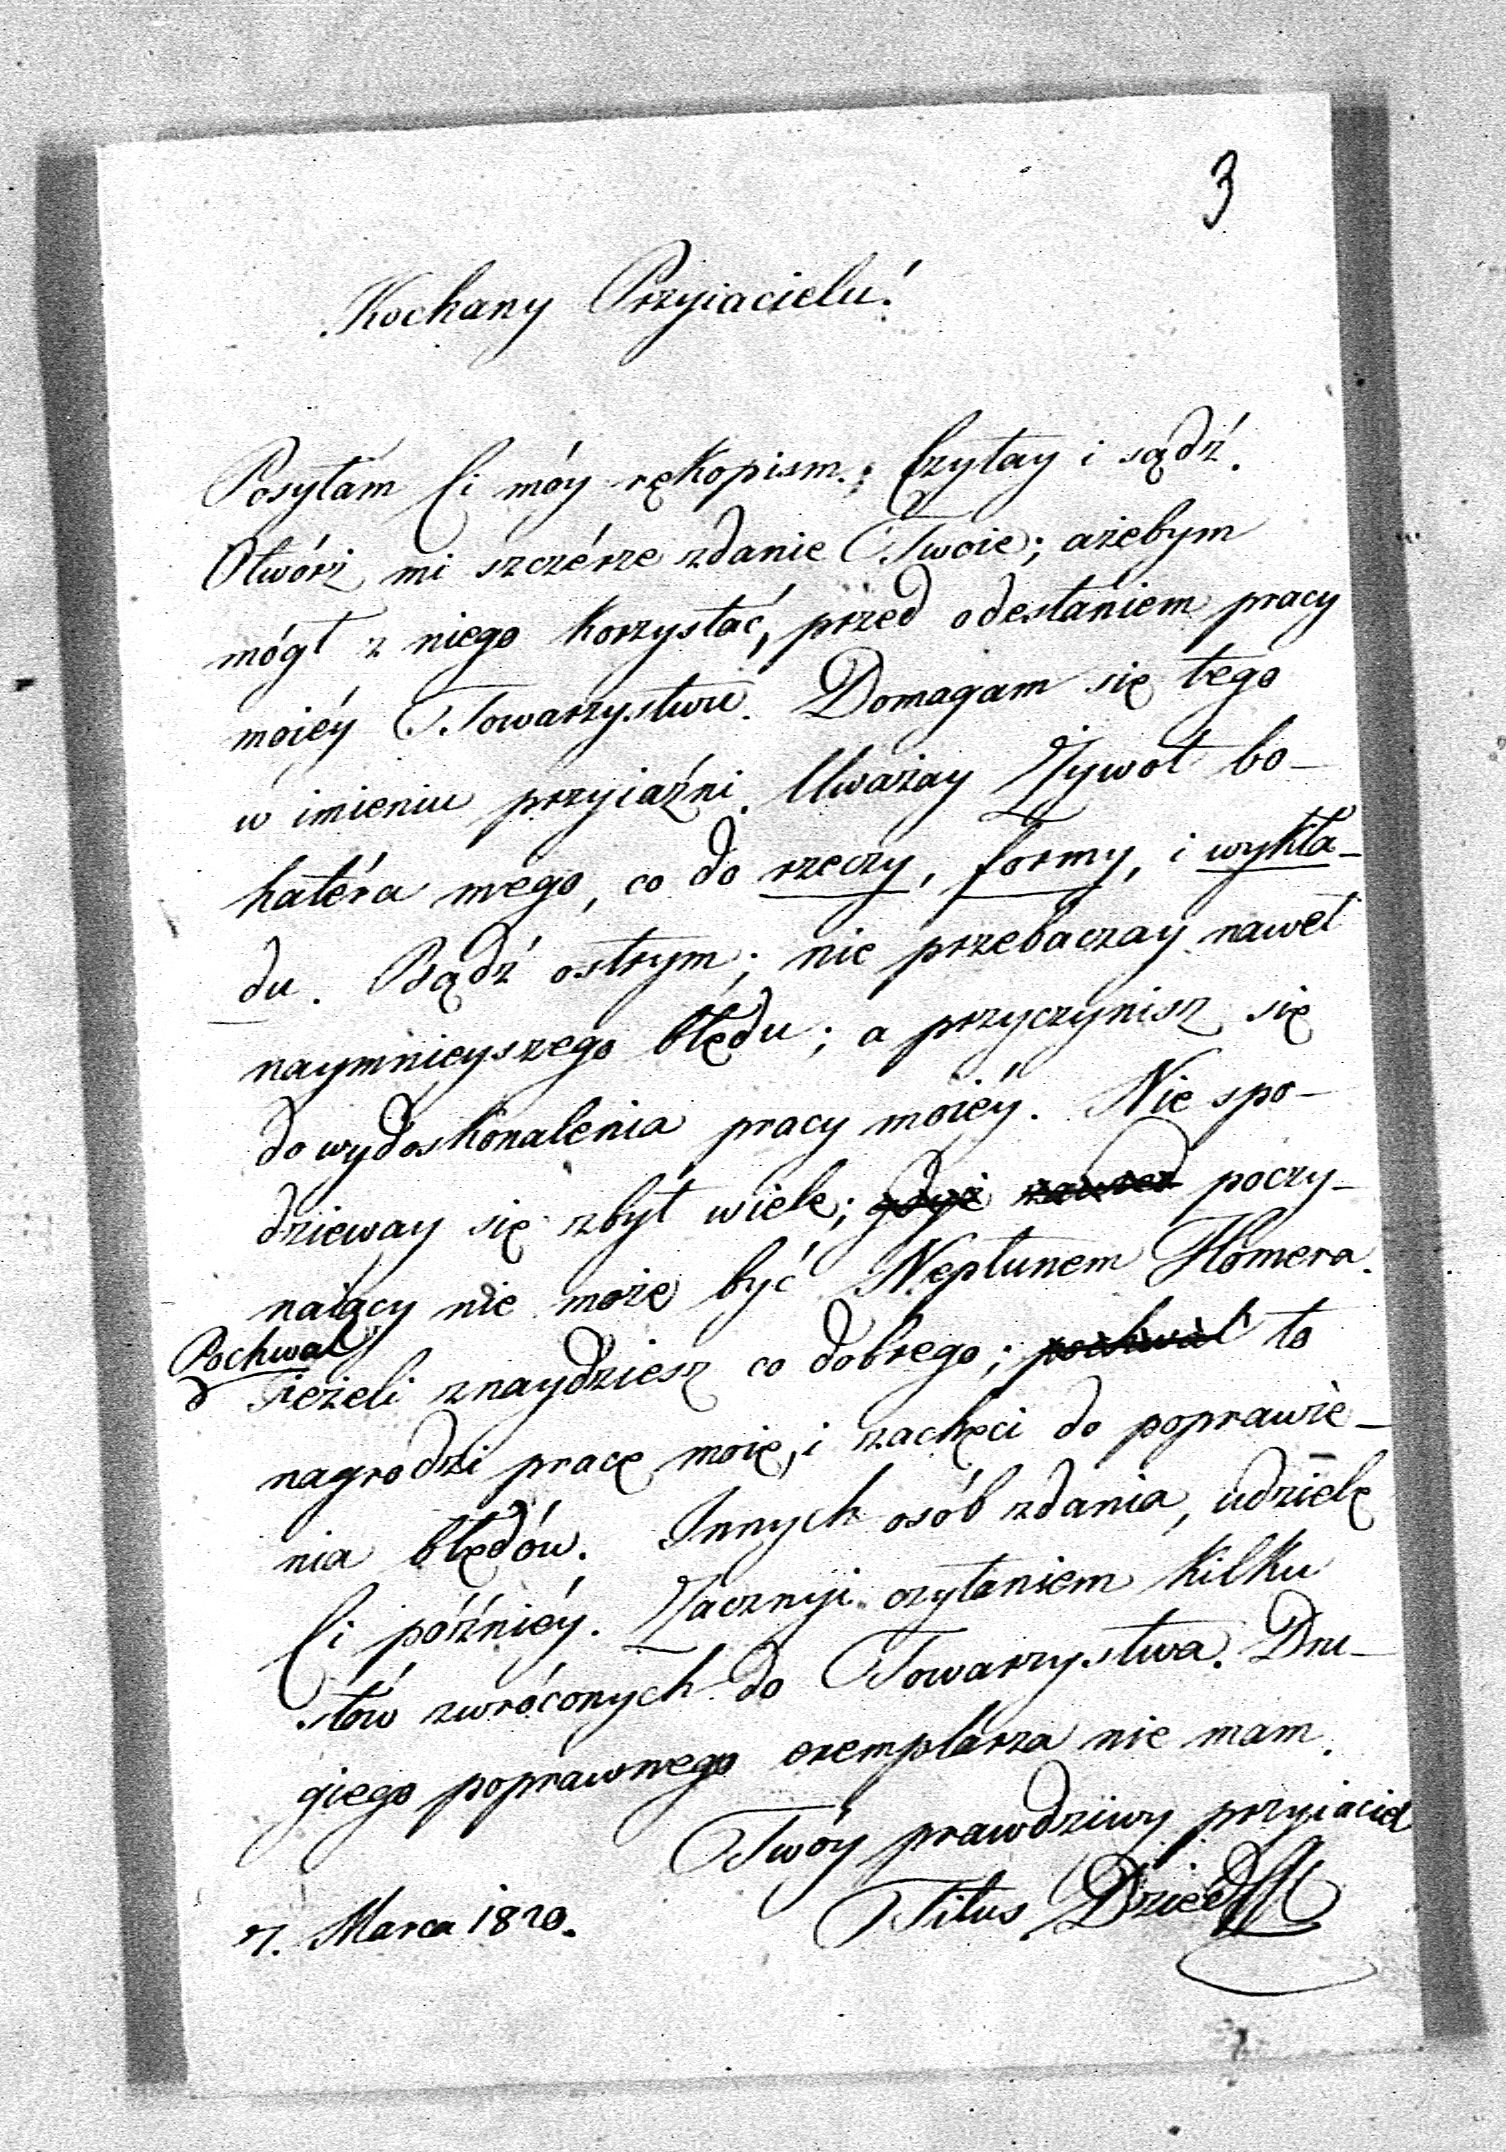 3
Kochany Przyiacielu!
Posyłam Ci móy rękopism.; Czytay i sądź.
Otwórz mi szczérze zdanie Twoie; ażebym
mógł z niego korzystać, przed odesłaniem pracy
moiéy Towarzystwu. Domagam się tego
w imieniu przyiaźni. Uważay Żywot bo-
hatéra mego, co do rzeczy, formy, i wykła-
du. Bądź ostrym; nie przebaczay nawet
naymnieyszego błędu; a przyczynisz się
do wydoskonalenia pracy moiéy. Nie spo-
dzieway się zbyt wiele; gdyż poczy-
naiący nie może być Neptunem Homera.
Pochwal
ieżeli znaydziesz co dobrego; pochwal to
nagrodzi pracę moię, i zachęci do poprawie-
nia błędów. Innych osób zdania, udzielę
Ci późniéy. Zacznyi czytaniem kilku
słów zwróconych do Towarzystwa. Dru-
giego poprawnego exemplarza nie mam.
Twóy prawdziwy przyiaciel
Titus
7. Marca 1820.